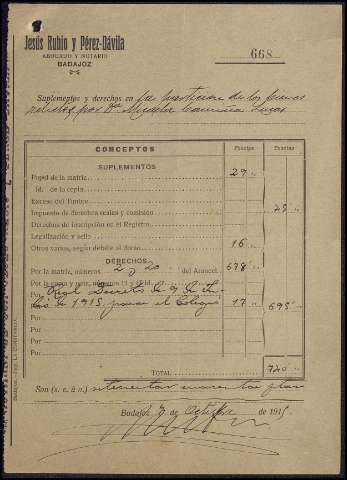 Jesús Rubio y Pérez-Dávila
ABOGADO Y NOTARIO
BADAJOZ
668
Suplementos y derechos en la particion de los bienes
por Dª
CONCEPTOS Pesetas Pesetas
SUPLEMENTOS
Papel de la matriz 29 "
Id. de la copia
Exceso del Timbre
Impuesto de derechos reales y comisión
Derechos de inscripción en el Registro
Legalización y sello
Otros varios, según detalle al dorso 16 "
DERECHOS
Por la matriz, números 2 y 20 del Arancel 678 "
Por la copia y nota, números
Por Real Decreto de 9 de
de 1915 para el Colegio 17 " 695 "
Por
Por
Por
TOTAL
Son (s. e. ú o.)
Badajoz 7 de Octubre de 1915